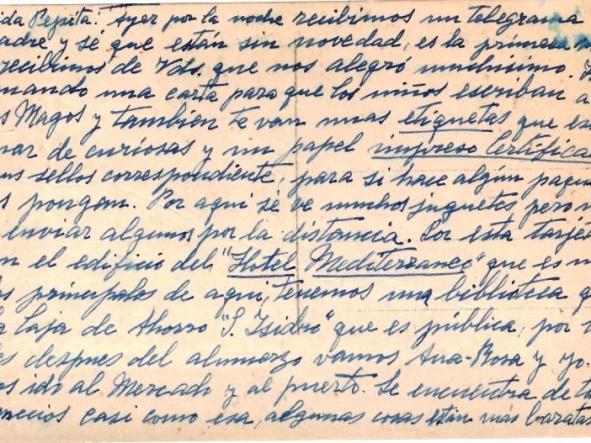 ida Pepita: Ayer por la noche recibimos un telegrama
adre, y sé que están sin novedad, es la primera
recibimos de Vds. que nos alegró muchisimo.
mando una carta para que los niños escriban a
s Magos y tambien te van unas etiquetas que
nar de curiosas y un papel impreso Certifica
us sellos correspondiente, para si hace algún paque
s pongan. Por aqui se ve muchos juguetes pero
enviar algunos por la distancia. Por esta tarjet
n el edificio del "Hotel Mediterraneo" que es
os principales de aqui, tenemos una biblioteca
la Caja de Ahorro "S. Isidro" que es pública, por
es despues del almuerzo vamos Ana-Rosa y yo.
os ido al Mercado y al puerto. Se encuentra de
recios casi como esa, algunas cosas están más baratas